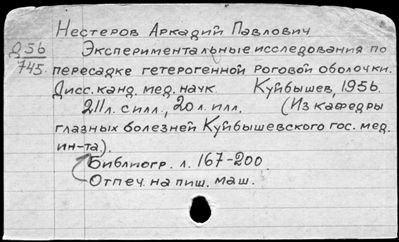 Нестеров Аркадий Павлович
Д56
745
Экспериментальные исследования по
пересадке гетерогенной роговой оболочки.
Дисс. канд. мед. наук Куйбышев, 1956.
211 л. с илл., 20 л. илл. (Из кафедры
глазных болезней Куйбышевского гос. мед.
ин-та).
Библиогр. л. 167-200
Отпеч. на пиш. маш.